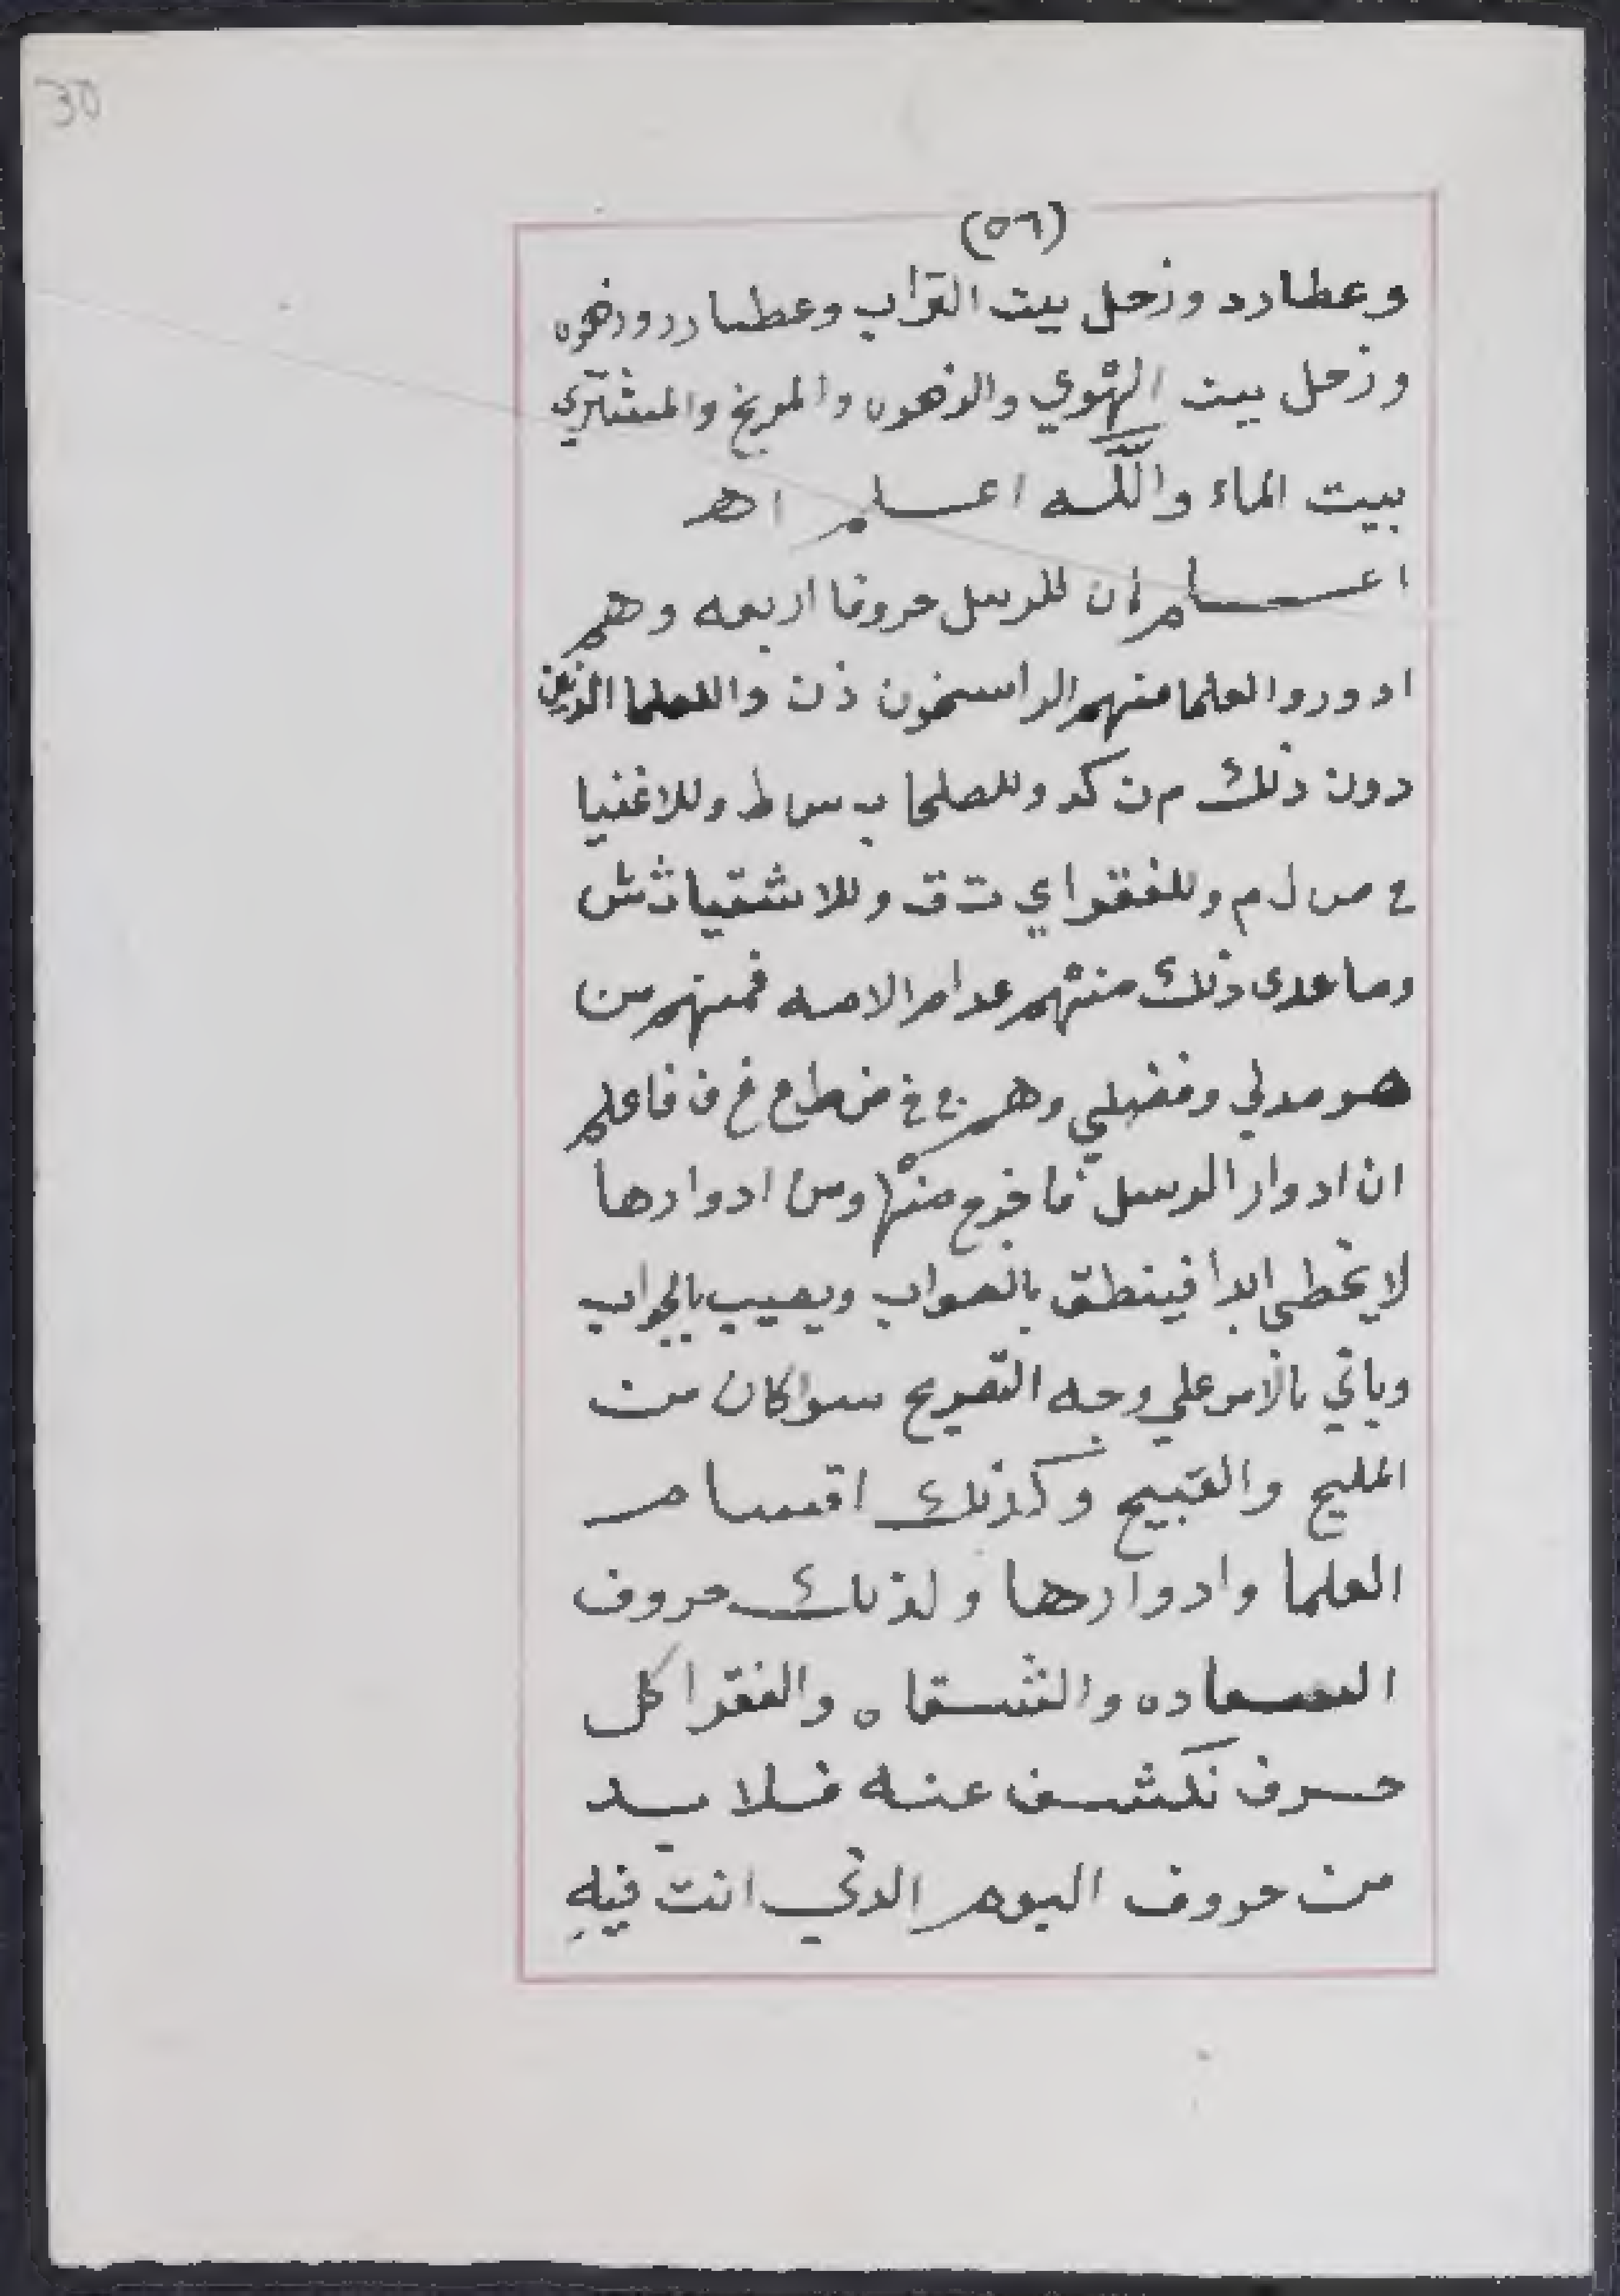 30
(٥٦)
وعطارد وزحل بيت التراب وعطارد وزهره
وزحل بيت الهوي والزهره والمريخ والمشتري
بيت الماء واللّه اعلم اهـ
اعلم ان للرسل حروفا اربعه وهم
ا د و ر والعلما منهم الراسخون ذ ن والعلما الذين
دون ذلك م ن ك د وللصلحا ب س ا ط وللاغنيا
ع ص ل م وللفقرا ي ت ق وللاشقيا ث ش
وما عدى ذلك منهم عوام الامه فمنهم من
هو مدلي وفضلي وهم ج خ ض ظ ع غ ف فاعلم
ان ادوار الرسل فا خرج منها ومن ادوارها
لا يخطي ابدا فينطق بالصواب ويصيب بالجواب
وياتي بالامر علي وجه التصريح سوا كان من
المليح والقبيح وكذلك اقسام
العلما وادوارها ولذلك حروف
السعاده والشقاه والفقرا كل
حرف نكشف عنه فلا بد
من حروف اليوم الذي انت فيهِ